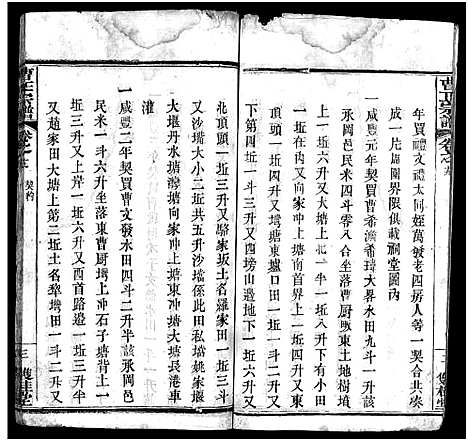 年買禮文禮太同姪萬發老四房人等一契合共湊
成一片周圍界限俱載祠堂圖內
一咸豐元年契買曹希濂希瑋大畧水田九斗一升該
承鄺邑民米四斗零八合坐落曹厨甑東土地樹墳
上一坵六升又大塘上北一半一坵八升下有小田
一坵一升在內又向家冲上塘下一坵一斗南首界上
頂頭一坵一斗四升又塆塘東壚口田一坵一斗三升
下第四坵一斗三升又四塝山邉地下一坵一斗
北頂頭一坵三斗又駱家坂土名羅家田一坵三斗
又沙塘大小二坵共五升沙壋係此田又壋姚家堰
大堰丹水塘灣塘向家冲上塘東冲塘大塘長港車
灌
一咸豐二年契買曹文發水田四斗二升半該承鄺邑
民米一斗六升坐落東曹厨塆上冲石子塘背上一
坵一斗三升半又大塘上六升又酉首路邉一坵三升
又趙家田大塘上第二坵土名犂塆田一斗二升又
曹氏宗譜
卷之
契約
三
雙桂堂
曹氏宗譜
卷之
二
雙桂堂